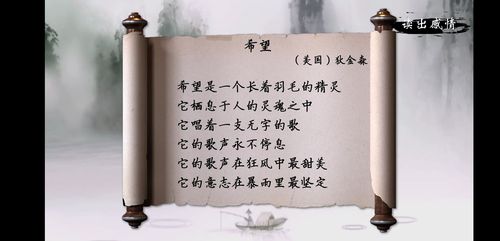 读出感情
希望
（美国）狄金森
希望是一个长着羽毛的精灵
它栖息于人的灵魂之中
它唱着一支无字的歌
它的歌声永不停息
它的歌声在狂风中最甜美
它的意志在暴雨里最坚定